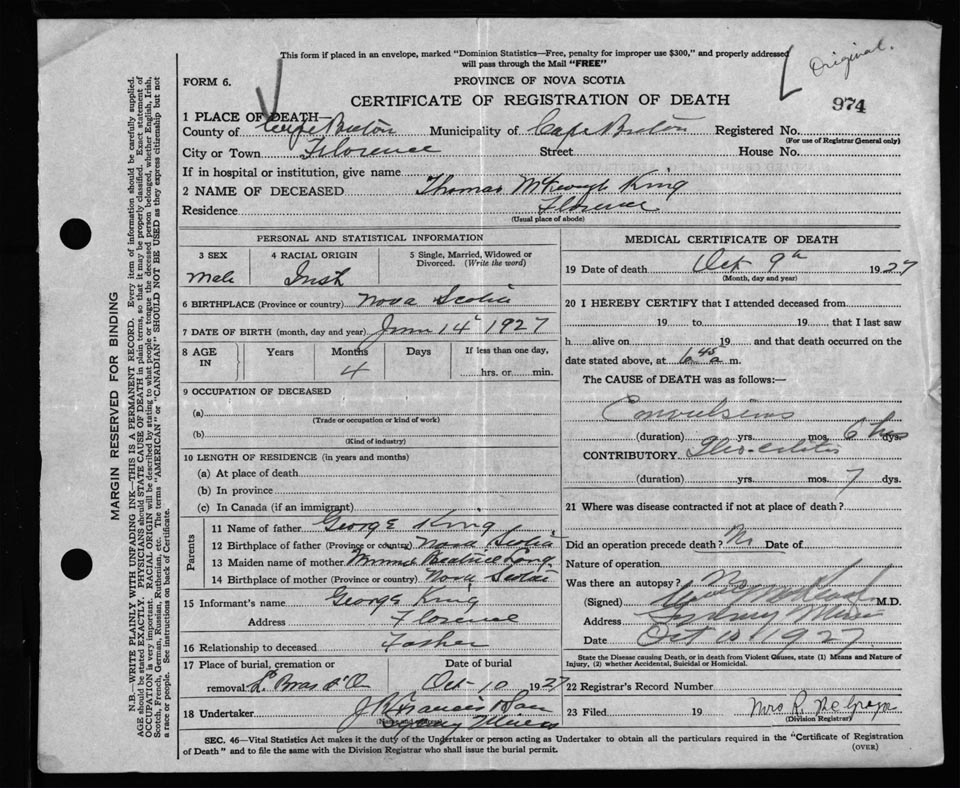 This form if placed in an envelope, marked "Dominion Statistics—Free, penalty for improper use $300," and properly addressed
will pass through the Mail "FREE"
Original.
FORM 6.
PROVINCE OF NOVA SCOTIA
CERTIFICATE OF REGISTRATION OF DEATH
974
1 PLACE OF DEATH—
County of Cape Breton Municipality of Cape Breton Registered No.
(For use of Registrar General only)
City or Town Florence Street House No.
If in hospital or institution, give name
2 NAME OF DECEASED Thomas McKeough King
Residence Florence
(Usual place of abode)
PERSONAL AND STATISTICAL INFORMATION
3 SEX 4 RACIAL ORIGIN 5 Single, Married, Widowed or
Divorced. (Write the word)
Male Irish
6 BIRTHPLACE (Province or country) Nova Scotia
7 DATE OF BIRTH (month, day and year) June 14 1927
8 AGE IN Years Months Days If less than one day,
4 hrs. or min.
9 OCCUPATION OF DECEASED
(a)
(Trade or occupation or kind of work)
(b)
(Kind of industry)
10 LENGTH OF RESIDENCE (in years and months)
(a) At place of death
(b) In province
(c) In Canada (if an immigrant)
Parents
11 Name of father George King
12 Birthplace of father (Province or country) Nova Scotia
13 Maiden name of mother Beatrice
14 Birthplace of mother (Province or country) Nova Scotia
15 Informant's name George King
Address Florence
16 Relationship to deceased Father
17 Place of burial, cremation or Date of burial
removal L. Bras d'O Oct 10 1927
18 Undertaker J. Francis
(Name)
Sydney Mines
MEDICAL CERTIFICATE OF DEATH
19 Date of death Oct 9th 1927
(Month, day and year)
20 I HEREBY CERTIFY that I attended deceased from
19 to 19 that I last saw
h alive on 19 and that death occurred on the
date stated above, at 6 45 a m.
The CAUSE of DEATH was as follows:—
Convulsions
(duration) yrs. mos. 6 hrs dys.
CONTRIBUTORY Ileo-colitis
(duration) yrs. mos. 7 dys.
21 Where was disease contracted if not at place of death?
Did an operation precede death? No Date of
Nature of operation
Was there an autopsy? No
(Signed) M.D.
Address Sydney Mines
Date Oct 10 1927
State the Disease causing Death, or in death from Violent Causes, state (1) Means and Nature of
Injury, (2) whether Accidental, Suicidal or Homicidal.
22 Registrar's Record Number
23 Filed 19 Mrs R.
(Division Registrar)
SEC. 46—Vital Statistics Act makes it the duty of the Undertaker or person acting as Undertaker to obtain all the particulars required in the "Certificate of Registration
of Death" and to file the same with the Division Registrar who shall issue the burial permit.
(OVER)
MARGIN RESERVED FOR BINDING
N.B.—WRITE PLAINLY WITH UNFADING INK—THIS IS A PERMANENT RECORD. Every item of information should be carefully supplied.
AGE should be stated EXACTLY. PHYSICIANS should STATE CAUSE OF DEATH in plain terms, so that it may be properly classified. Exact statement of
OCCUPATION is very important. RACIAL ORIGIN will be described by stating to what people or tongue the deceased person belonged, whether English, Irish,
Scotch, French, German, Russian, Ruthenian, etc. The terms "AMERICAN" or "CANADIAN" SHOULD NOT BE USED as they express citizenship but not
a race or people. See instructions on back of Certificate.